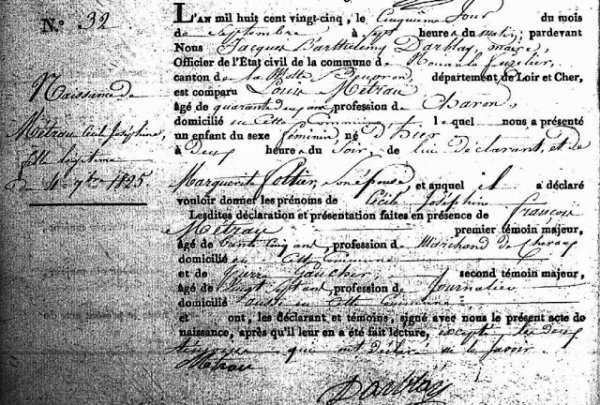 N.° 32
Naissance de
Métrau Cécile Joséphine
fille légitime
du 4 7bre 1825
L'an mil huit cent vingt-cinq, le Cinquième Jour du mois
de Septembre à Sept heure du Matin, pardevant
Nous Jacques Barthelemy Darblay maire,
Officier de l'État civil de la commune de Nouan le fuzelier,
canton de la Motte Beuvron, département de Loir et Cher,
est comparu Louis Métrau
âgé de quarante deux ans, profession de Charon,
domicilié en Cette Commune, lequel nous a présenté
un enfant du sexe féminin né d'hier
à Deux heure du Soir, de lui déclarant, et de
Marguerite Pottier, son épouse, et auquel il a déclaré
vouloir donner les prénoms de Cécile Joséphine
Lesdites déclaration et présentation faites en présence de François
Métray premier témoin majeur,
âgé de ans, profession de Marchand de
domicilié en Cette Commune
et de Gaucher, second témoin majeur,
âgé de vingt sept ans, profession de Journalier
domicilié aussi en Cette Commune
et ont, les déclarant et témoins, signé avec nous le présent acte de
naissance, après qu'il leur en a été fait lecture, excepté les deux
témoins qui ont déclaré ne le savoir.
Métrau
Darblay